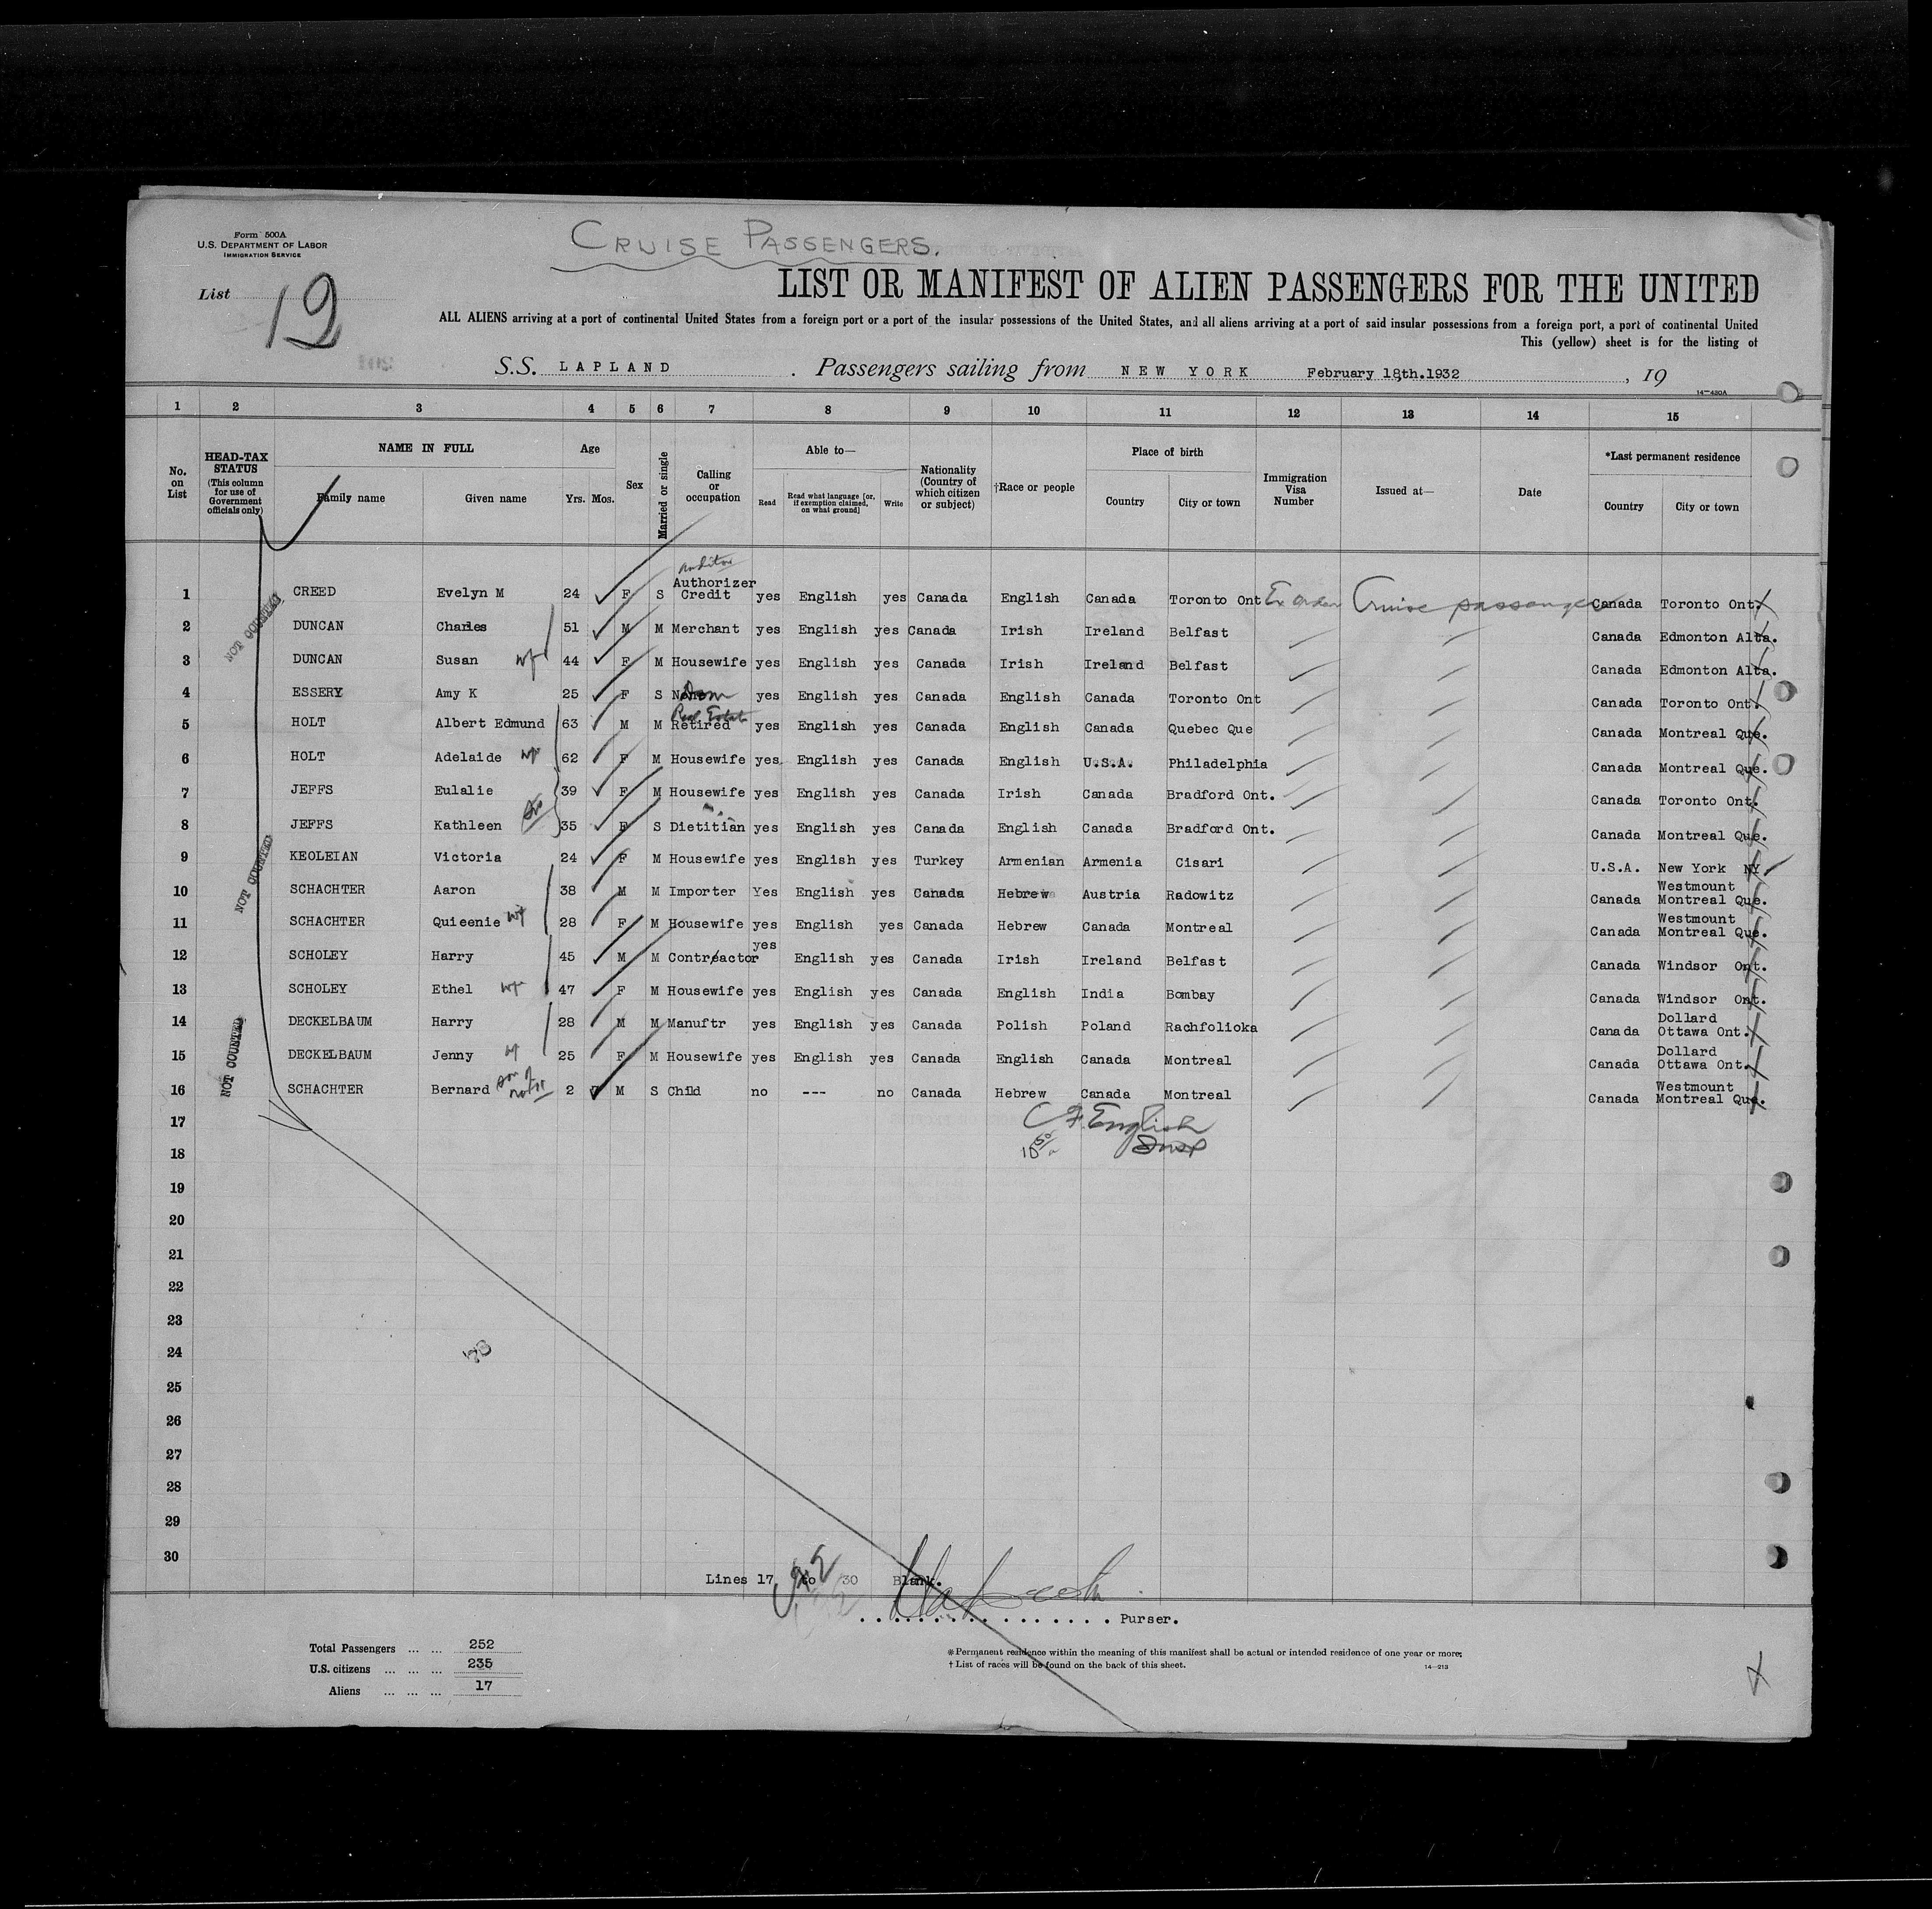 Form 500A
U.S. DEPARTMENT OF LABOR
IMMIGRATION SERVICE
CRUISE PASSENGERS.
List 19
LIST OR MANIFEST OF ALIEN PASSENGERS FOR THE UNITED
ALL ALIENS arriving at a port of continental United States from a foreign port or a port of the insular possessions of the United States, and all aliens arriving at a port of said insular possessions from a foreign port, a port of continental United
This (yellow) sheet is for the listing of
S.S. LAPLAND . Passengers sailing from NEW YORK February 18th.1932 , 19
14—430A
1 2 3 4 5 6 7 8 9 10 11 12 13 14 15
No. on List
HEAD-TAX STATUS (This column for use of Government officials only)
NAME IN FULL
Family name Given name
Age
Yrs. Mos.
Sex
Married or single
Calling or occupation
Able to—
Read Read what language [or, if exemption claimed, on what ground] Write
Nationality (Country of which citizen or subject)
†Race or people
Place of birth
Country City or town
Immigration Visa Number
Issued at—
Date
*Last permanent residence
Country City or town
Auditor
1 CREED Evelyn M 24 F S Authorizer Credit yes English yes Canada English Canada Toronto Ont Ex Order Cruise passenger Canada Toronto Ont.
2 DUNCAN Charles 51 M M Merchant yes English yes Canada Irish Ireland Belfast Canada Edmonton Alta.
3 DUNCAN Susan wf 44 F M Housewife yes English yes Canada Irish Ireland Belfast Canada Edmonton Alta.
4 ESSERY Amy K 25 F S Dom yes English yes Canada English Canada Toronto Ont Canada Toronto Ont.
Real Estate
5 HOLT Albert Edmund 63 M M Retired yes English yes Canada English Canada Quebec Que Canada Montreal Que.
6 HOLT Adelaide wf 62 F M Housewife yes English yes Canada English U.S.A. Philadelphia Canada Montreal Que.
7 JEFFS Eulalie 39 F M Housewife yes English yes Canada Irish Canada Bradford Ont. Canada Toronto Ont.
8 JEFFS Kathleen 35 F S Dietitian yes English yes Canada English Canada Bradford Ont. Canada Montreal Que.
9 KEOLEIAN Victoria 24 F M Housewife yes English yes Turkey Armenian Armenia Cisari U.S.A. New York NY
10 SCHACHTER Aaron 38 M M Importer Yes English yes Canada Hebrew Austria Radowitz Canada Westmount Montreal Que.
11 SCHACHTER Quieenie wf 28 F M Housewife yes English yes Canada Hebrew Canada Montreal Canada Westmount Montreal Que.
12 SCHOLEY Harry 45 M M Contreactor yes English yes Canada Irish Ireland Belfast Canada Windsor Ont.
13 SCHOLEY Ethel wf 47 F M Housewife yes English yes Canada English India Bombay Canada Windsor Ont.
14 DECKELBAUM Harry 28 M M Manuftr yes English yes Canada Polish Poland Rachfolioka Canada Dollard Ottawa Ont.
15 DECKELBAUM Jenny wf 25 F M Housewife yes English yes Canada English Canada Montreal Canada Dollard Ottawa Ont.
16 SCHACHTER Bernard son of no 11 2 M S Child no --- no Canada Hebrew Canada Montreal Canada Westmount Montreal Que.
NOT COUNTED
NOT COUNTED
NOT COUNTED
17
C F. English
18
Insp
19
20
21
22
23
24
25
26
27
28
29
30
Lines 17 to 30 Blank.
Purser.
Total Passengers ... ... 252
U.S. citizens ... ... ... 235
Aliens ... ... ... 17
*Permanent residence within the meaning of this manifest shall be actual or intended residence of one year or more.
†List of races will be found on the back of this sheet.
14—213